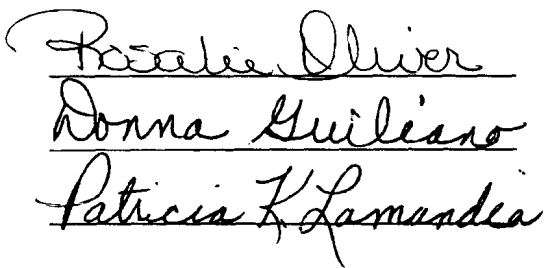 Rosalie Oliver
Donna Guiliano
Patricia K Lamandia